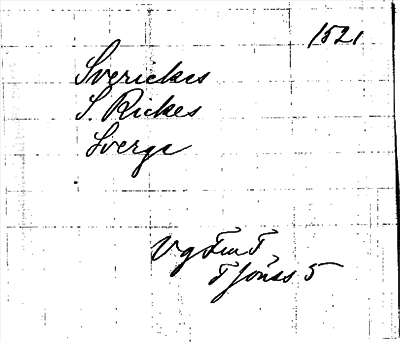 1521
Sverickes
S. Rickes
Sverge
Vg Fm F
Tjöuss 5